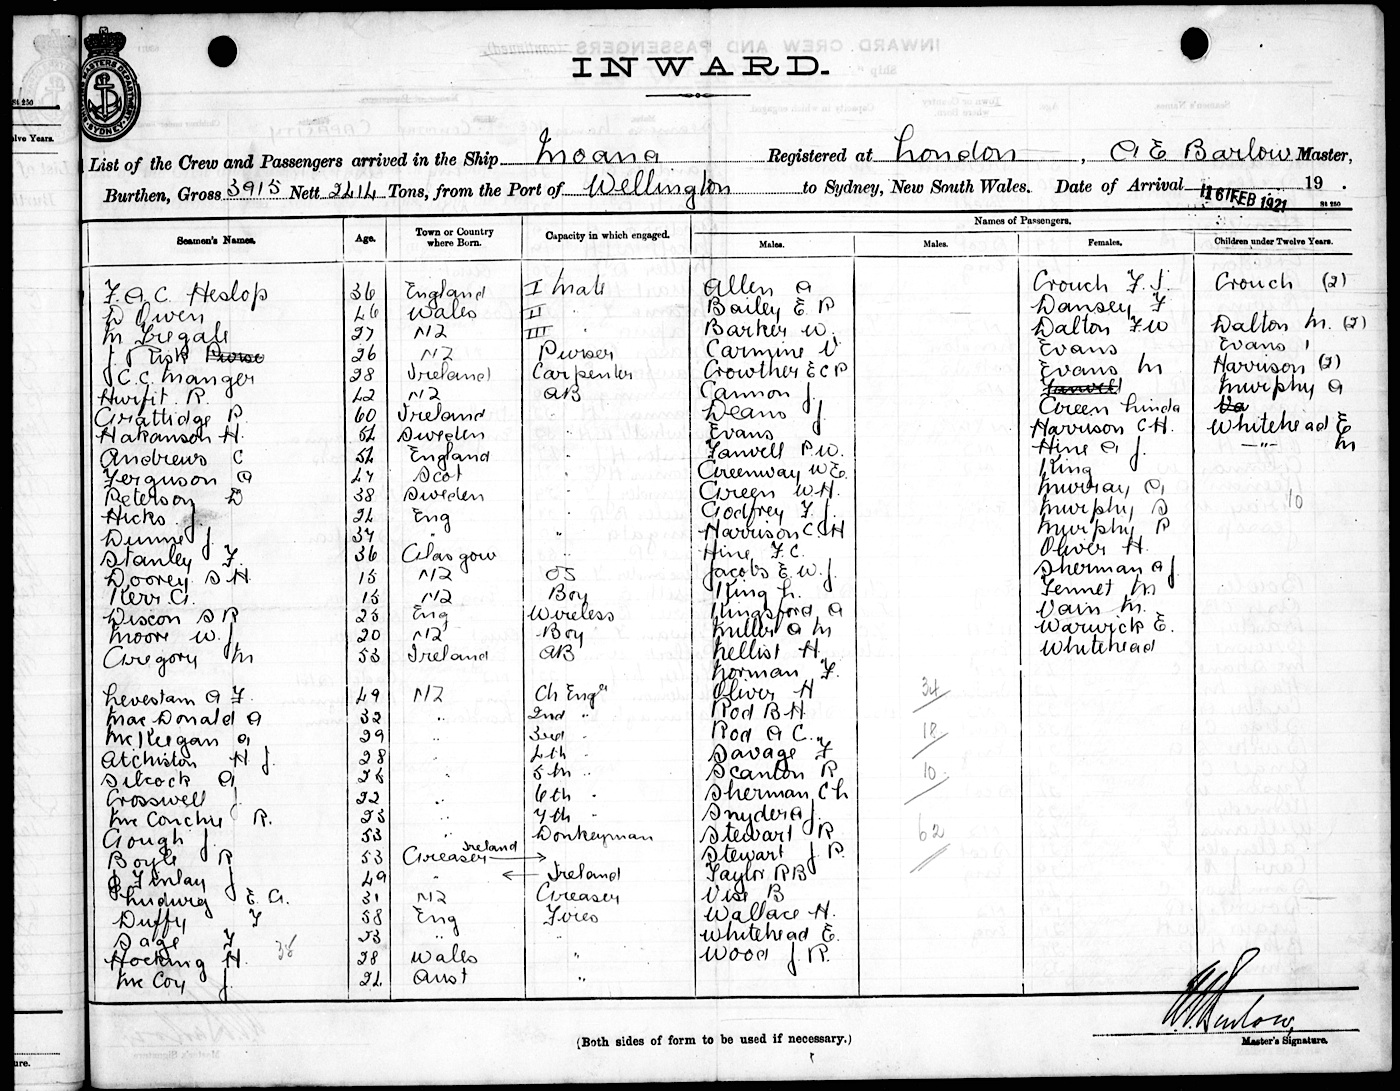 INWARD.
List of the Crew and Passengers arrived in the Ship Moana Registered at London, A E Barlow Master,
Burthen, Gross 3915 Nett 2414 Tons, from the Port of Wellington to Sydney, New South Wales. Date of Arrival 16 FEB 1921 19 .
St 250
Names of Passengers.
Seamen's Names. Age. Town or Country where Born. Capacity in which engaged. Males. Males. Females. Children under Twelve Years.
F. A C. Heslop 36 England I Mate Allen A Crouch F. J. Crouch (2)
D Owen 46 Wales II " Bailey E R Dansey F
M Tregale 27 NZ III " Barker W. Dalton F W Dalton M. (2)
J. Rusk Purser 26 NZ Purser Carmine V Evans Evans 1
C. C. Manger 28 Ireland Carpenter Crowther E C P Evans M Harrison (2)
Hurfit R. 42 NZ AB Cannon J. Fanvell Murphy A
Grattidge P. 60 Ireland " Deans J Green Linda Va
Hakanson H. 51 Sweden " Evans Harrison C H. Whitehead E
Andrews C 54 England " Fanvell P W. Hine A J. — " — M
Ferguson A 47 Scot " Greenway W E. King
Peterson D 38 Sweden " Green W H. Murray A
Hicks J 24 Eng " Godfrey F. J. Murphy D 10
Dunne J. 37 " " Harrison C H Murphy P
Stanley F. 36 Glasgow " Hine F. C. Oliver H.
Doorey S H. 15 NZ OS Jacobs E. W. J. Sherman A J.
Kerr G. 15 NZ Boy King L. Tennet M
Discon S R 25 Eng Wireless Kingsford A Vain M.
Moore W. J 20 NZ Boy Miller A M Warwick E.
Gregory M 53 Ireland AB Nellist H. Whitehead
Norman F.
Levestam A F. 49 NZ Ch Engr Oliver H 34
MacDonald A 32 " 2nd " Rod B H
McKeegan A 29 " 3rd " Rod A C. 18
Atchiston H J. 28 " 4th " Savage F
Silcock A 26 " 5th " Scanlon R 10
Crosswell J. 22 " 6th " Sherman Ch
McConchie R. 25 " 7th " Snyder A J.
Gough J. 53 " Donkeyman Stewart R 62
Boyle R 53 Greaser Ireland Stewart J R.
Finlay J 49 " Ireland Taylor R B
Ludwig E. A. 31 NZ Greaser Vise B
Duffy F 58 Eng Fires Wallace H.
Sage F 53 " " Whitehead E.
Hocking H. 38 28 Wales " Wood J. R.
McCoy J. 24 Aust "
(Both sides of form to be used if necessary.)
A. E. Barlow,
Master's Signature.